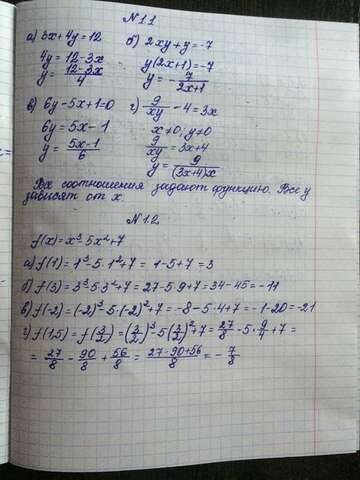 N1.1
а) 3x + 4y = 12 б) 2xy + y = -7
4y = 12 - 3x y(2x+1) = -7
y = (12-3x)/4 y = - 7/(2x+1)
в) 6y - 5x + 1 = 0 г) 9/xy - 4 = 3x
6y = 5x - 1 x ≠ 0; y ≠ 0
y = (5x-1)/6 9/xy = 3x+4
y = 9/((3x+4)x)
Все соотношения задают функцию. Все y
зависят от x.
N1.2
f(x) = x³ - 5x² + 7
а) f(1) = 1³ - 5·1² + 7 = 1 - 5 + 7 = 3
б) f(3) = 3³ - 5·3² + 7 = 27 - 5·9 + 7 = 34 - 45 = -11
в) f(-2) = (-2)³ - 5·(-2)² + 7 = -8 - 5·4 + 7 = -1 - 20 = -21
г) f(1,5) = f(3/2) = (3/2)³ - 5(3/2)² + 7 = 27/8 - 5·9/4 + 7 =
= 27/8 - 90/8 + 56/8 = (27-90+56)/8 = - 7/8